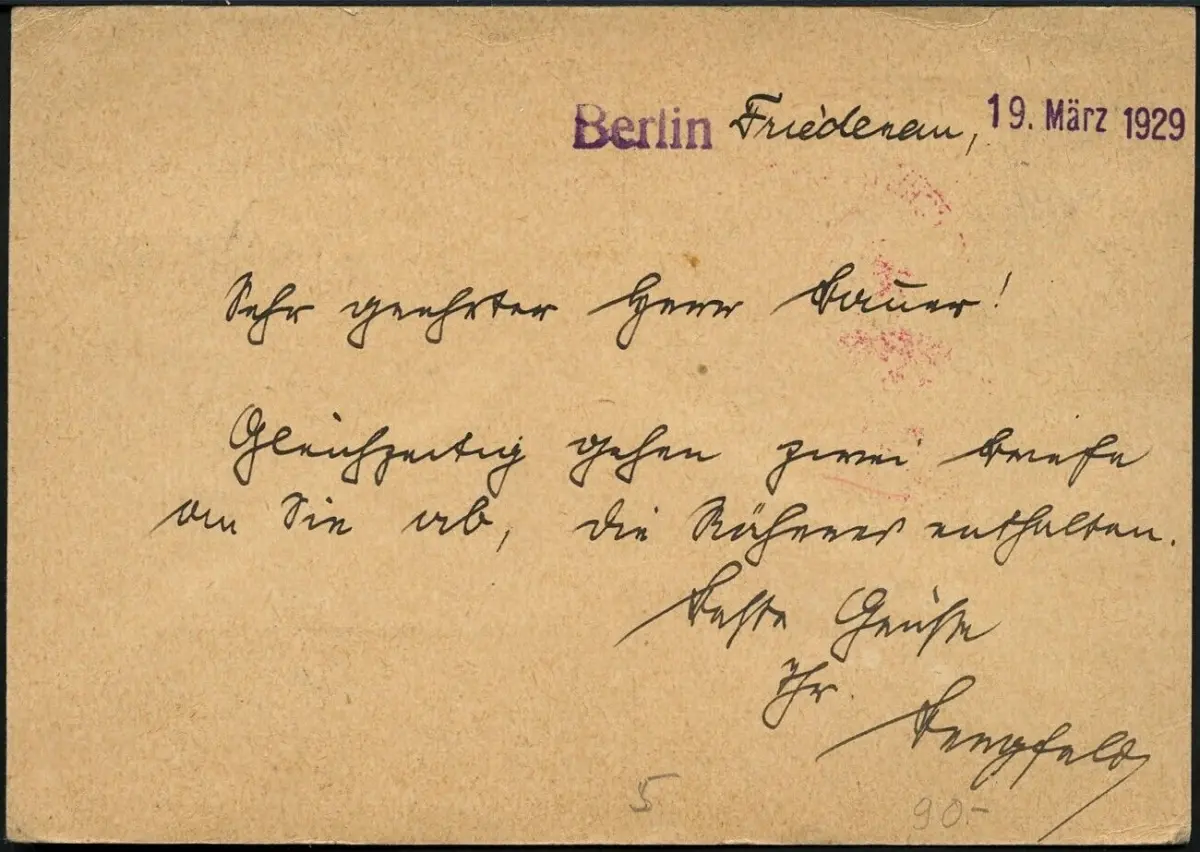 Berlin Friedenau, 19. März 1929
Sehr geehrter Herr Bauer!
Gleichzeitig gehen zwei Briefe
an Sie ab, die Näheres enthalten.
Beste Grüße
Ihr.
Bergfeld
5 90.-